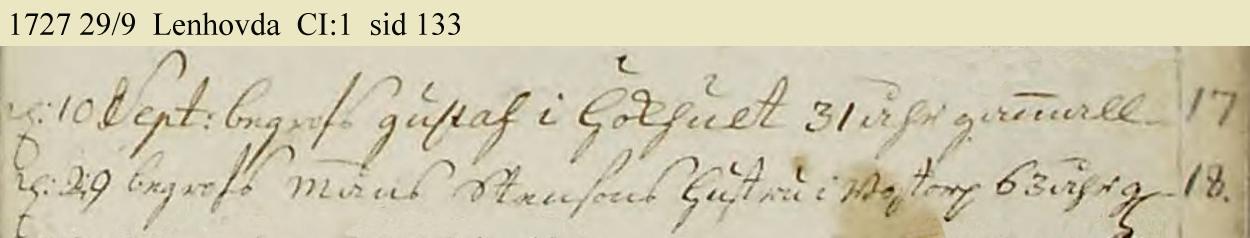 1727 29/9 Lenhovda CI:1 sid 133
d: 10 Sept: begrofs gustaf i 31 åhr gam̄all 17
d: 29 begrofs Måns Stensons hustru i 63 åhr g 18.